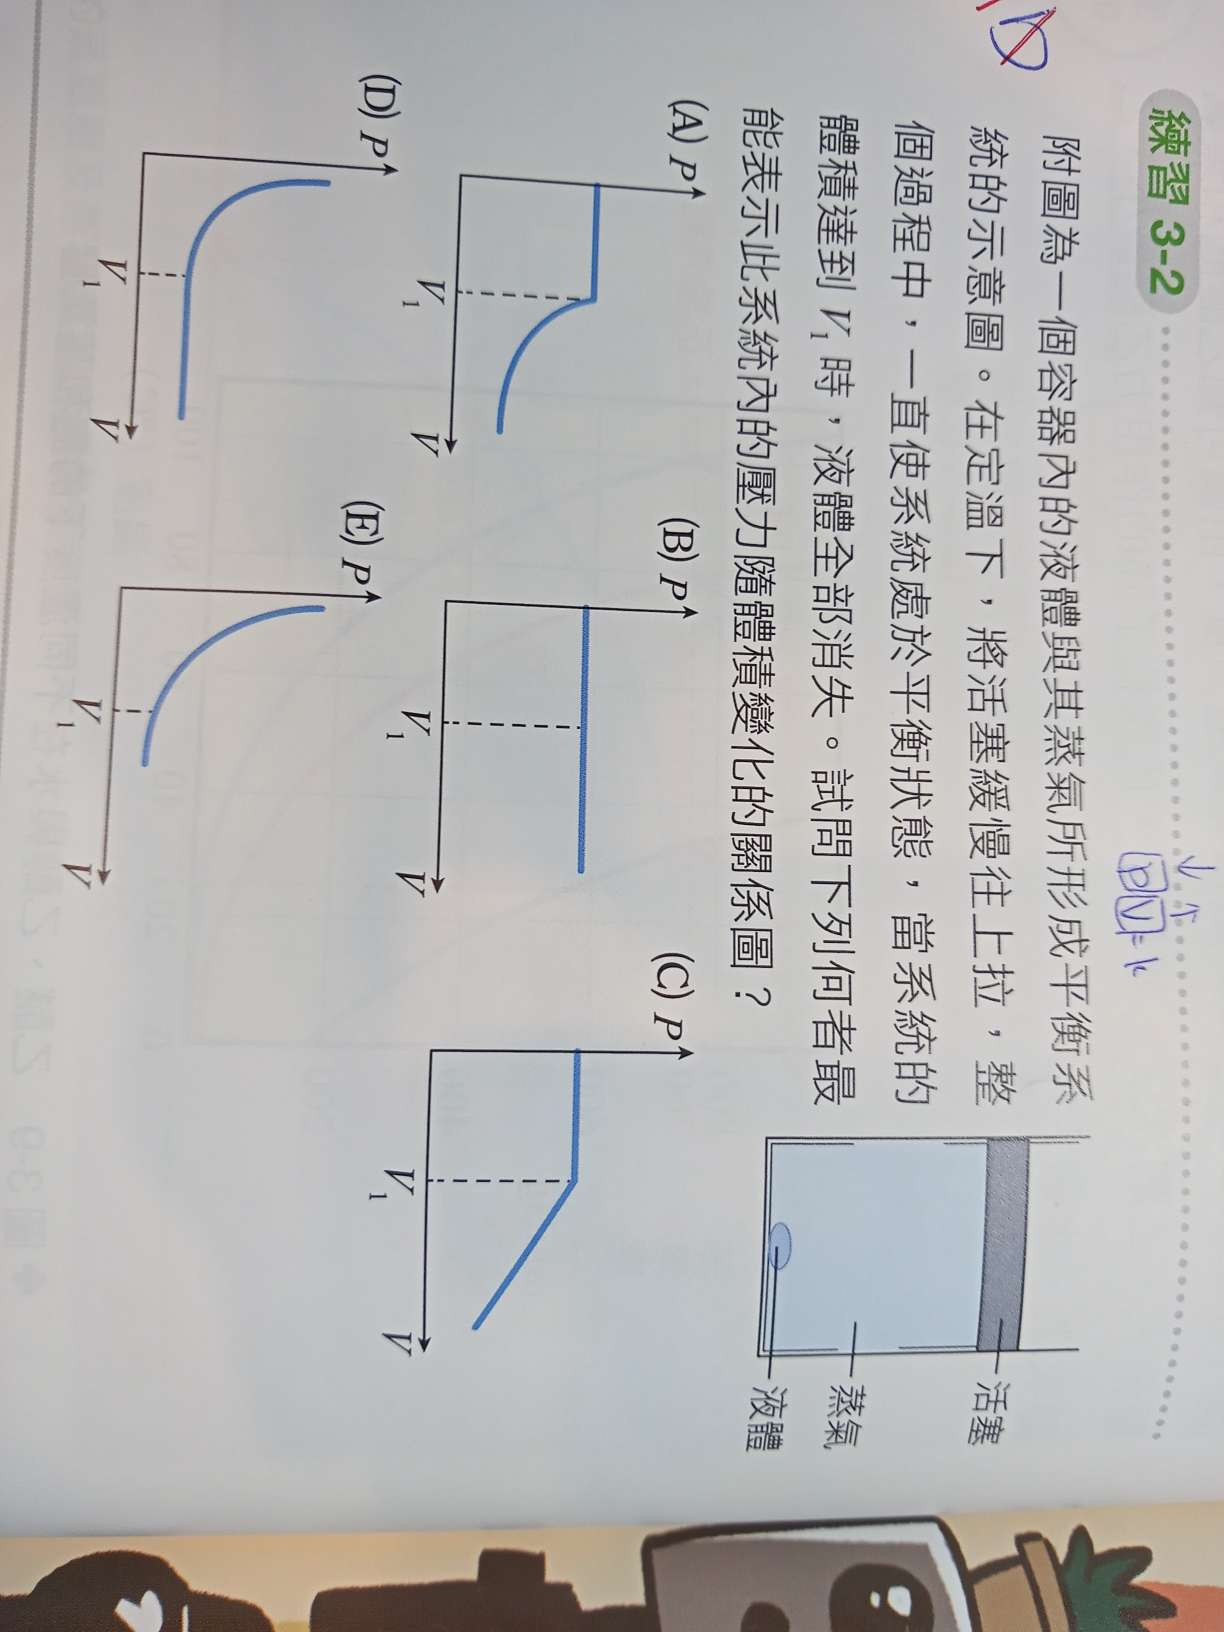 D
練習 3-2
↓ ↑
PV=k
附圖為一個容器內的液體與其蒸氣所形成平衡系
統的示意圖。在定溫下,將活塞緩慢往上拉,整
個過程中,一直使系統處於平衡狀態,當系統的
體積達到 V₁ 時,液體全部消失。試問下列何者最
能表示此系統內的壓力隨體積變化的關係圖?
活塞
蒸氣
液體
(A) P
V₁
V
(B) P
V₁
V
(C) P
V₁
V
(D) P
V₁
V
(E) P
V₁
V